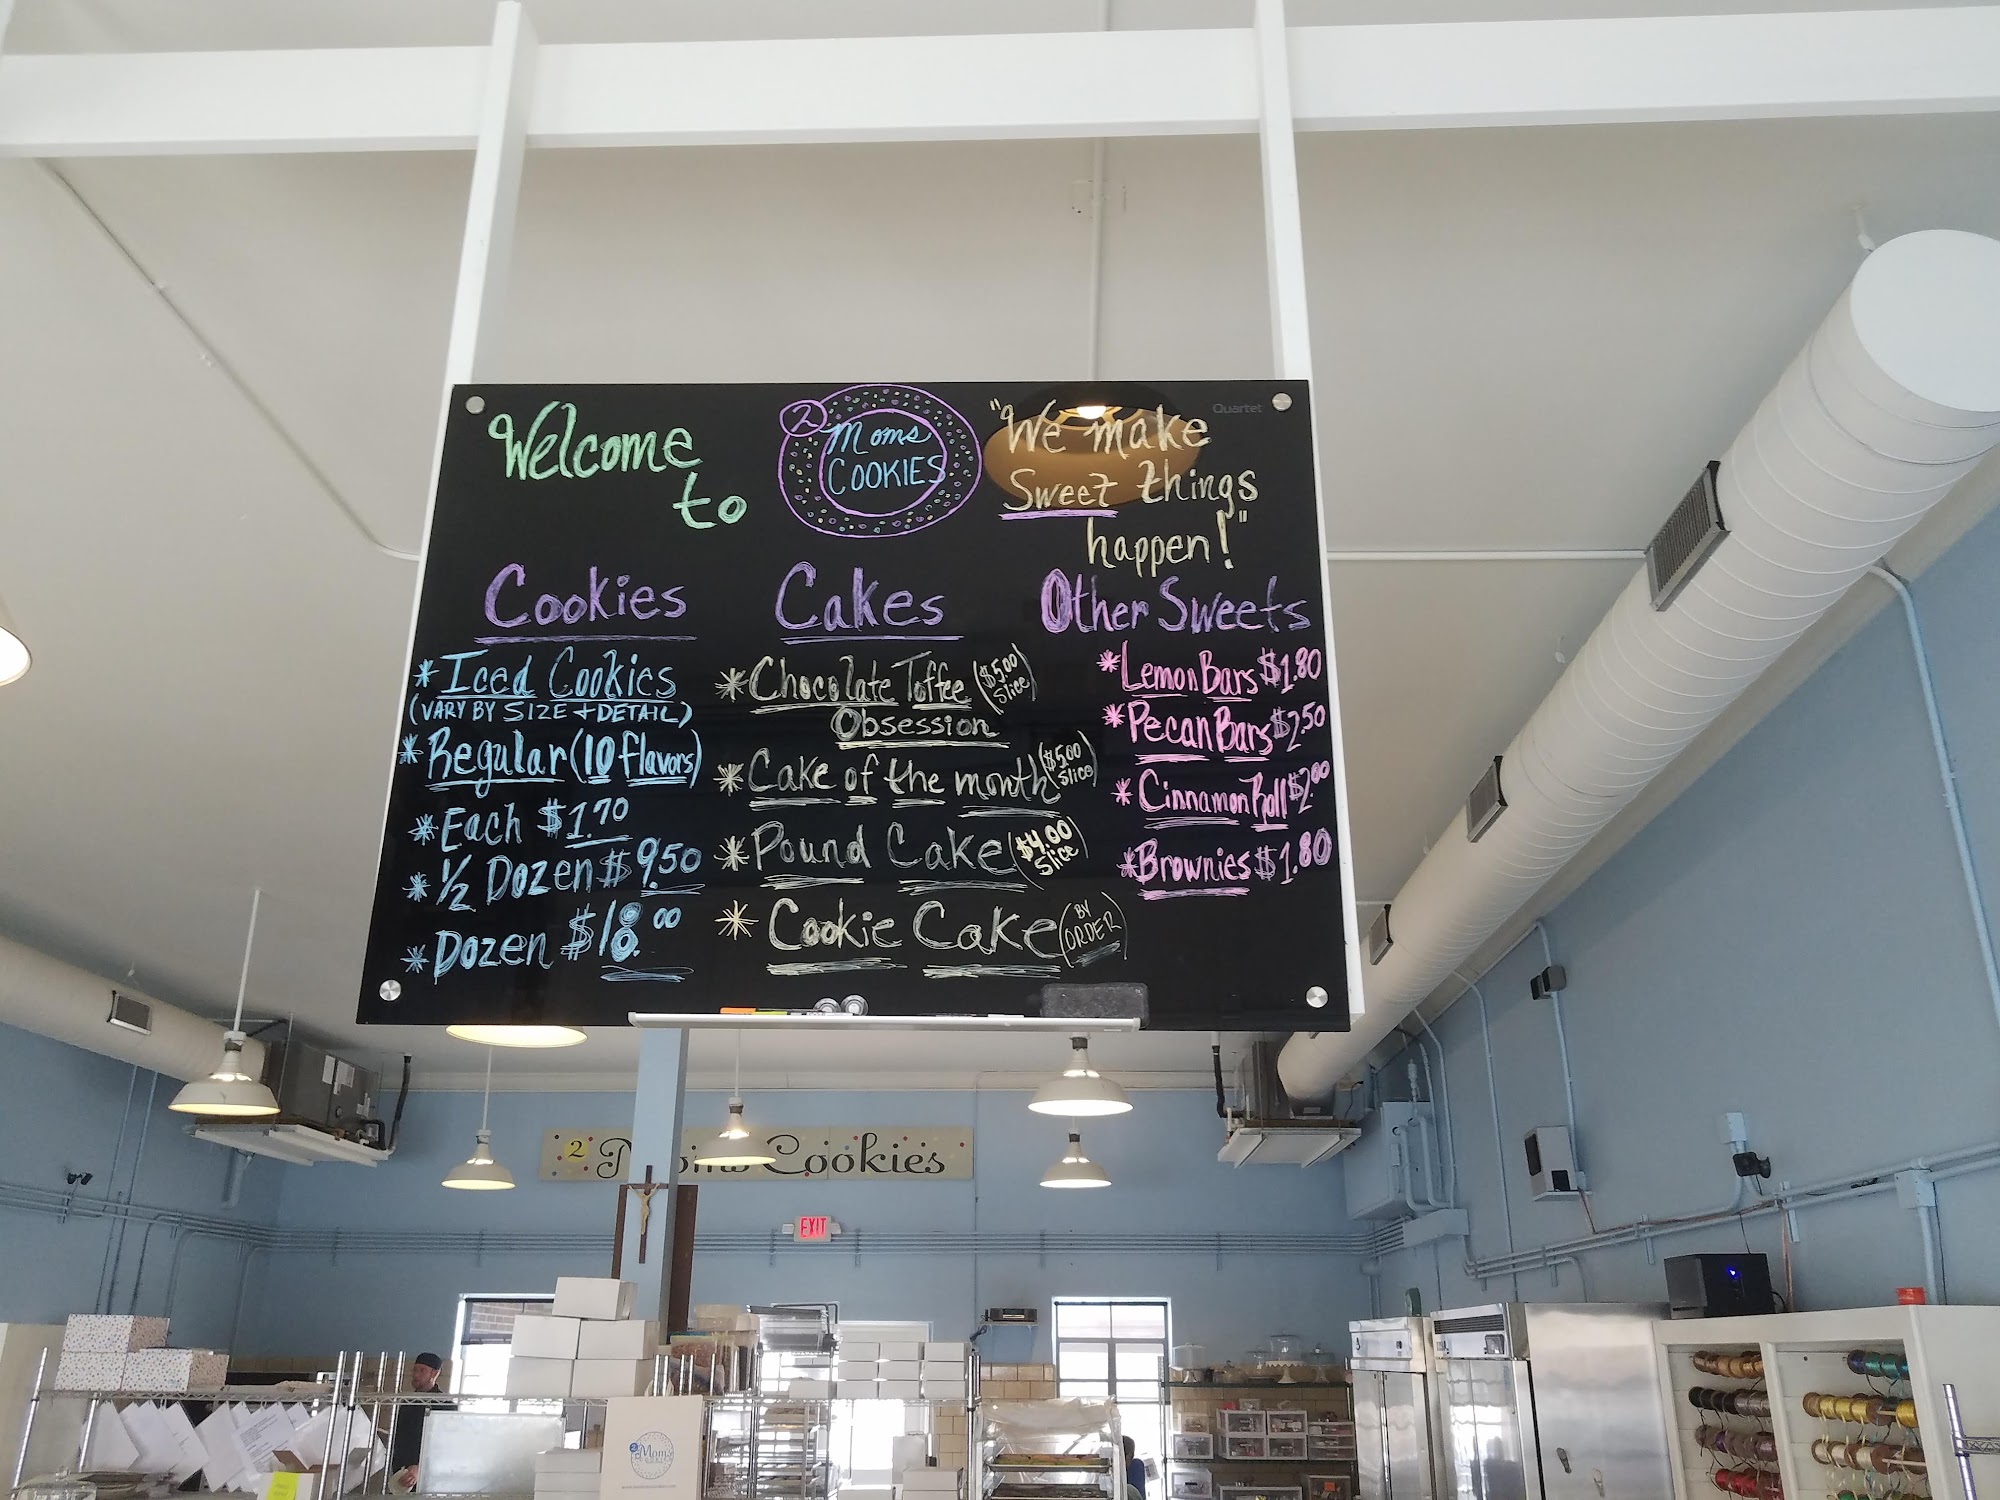 Welcome
to
2
Moms
COOKIES
"We make
Sweet things
happen!"
Quartet
Cookies
* Iced Cookies
(VARY BY SIZE + DETAIL)
* Regular (10 flavors)
* Each $1.70
* 1/2 Dozen $9.50
* Dozen $18.00
Cakes
* Chocolate Toffee ($5.00 Slice)
Obsession
* Cake of the month ($5.00 Slice)
* Pound Cake ($4.00 Slice)
* Cookie Cake (BY ORDER)
Other Sweets
* Lemon Bars $1.80
* Pecan Bars $2.50
* Cinnamon Roll $2.00
* Brownies $1.80
2 Moms Cookies
EXIT
2 Moms